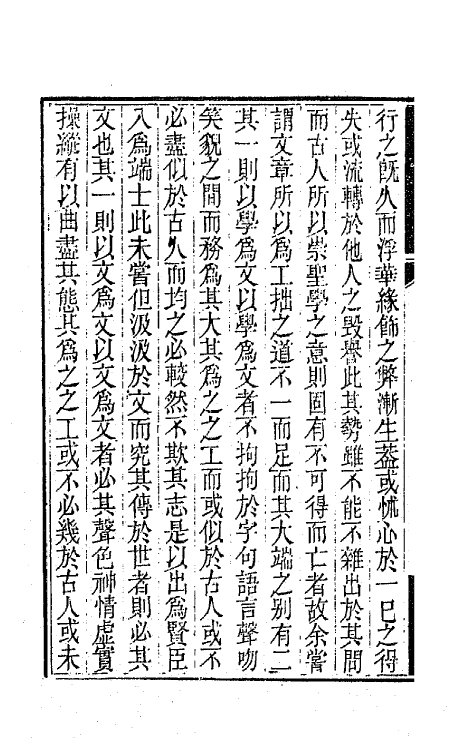 行之旣久而浮華緣飾之弊漸生葢或怵心於一已之得
失或流轉於他人之毀譽此其勢雖不能不雜出於其間
而古人所以崇聖學之意則固有不可得而亡者故余嘗
謂文章所以爲工拙之道不一而足而其大端之别有二
其一則以學爲文以學爲文者不拘拘於字句語言聲吻
笑貌之間而務爲其大其爲之之工而或似於古人或不
必盡似於古人而均之必較然不欺其志是以出爲賢臣
入爲端士此未嘗但汲汲於文而究其傳於世者則必其
文也其一則以文爲文以文爲文者必其聲色神情虛實
操縱有以曲盡其態其爲之之工或不必幾於古人或未